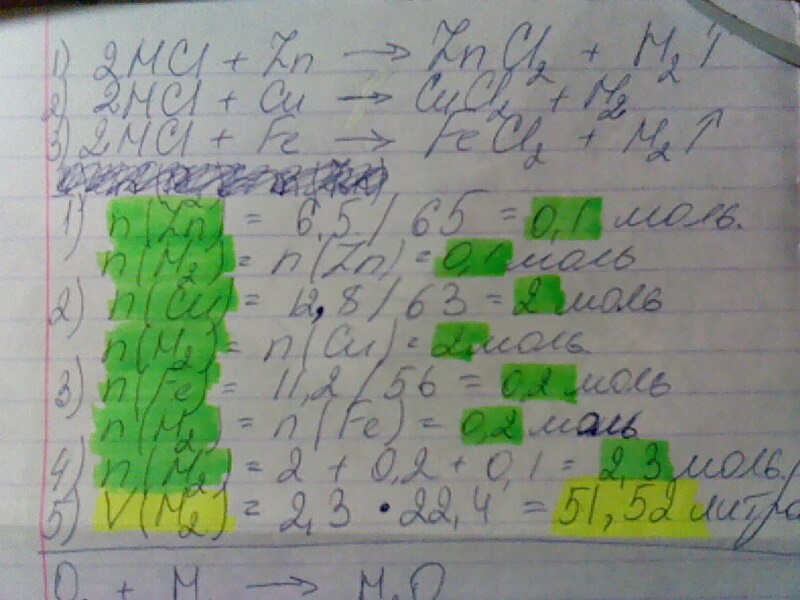 1) 2HCl + Zn → ZnCl₂ + H₂↑
2) 2HCl + Cu → CuCl₂ + H₂
3) 2HCl + Fe → FeCl₂ + H₂↑
1) n(Zn) = 6,5 / 65 = 0,1 моль.
n(H₂) = n(Zn) = 0,1 моль
2) n(Cu) = 12,8 / 63 = 2 моль
n(H₂) = n(Cu) = 2 моль
3) n(Fe) = 11,2 / 56 = 0,2 моль
n(H₂) = n(Fe) = 0,2 моль
4) n(H₂) = 2 + 0,2 + 0,1 = 2,3 моль.
5) V(H₂) = 2,3 • 22,4 = 51,52 литра
O₂ + H₂ → H₂O